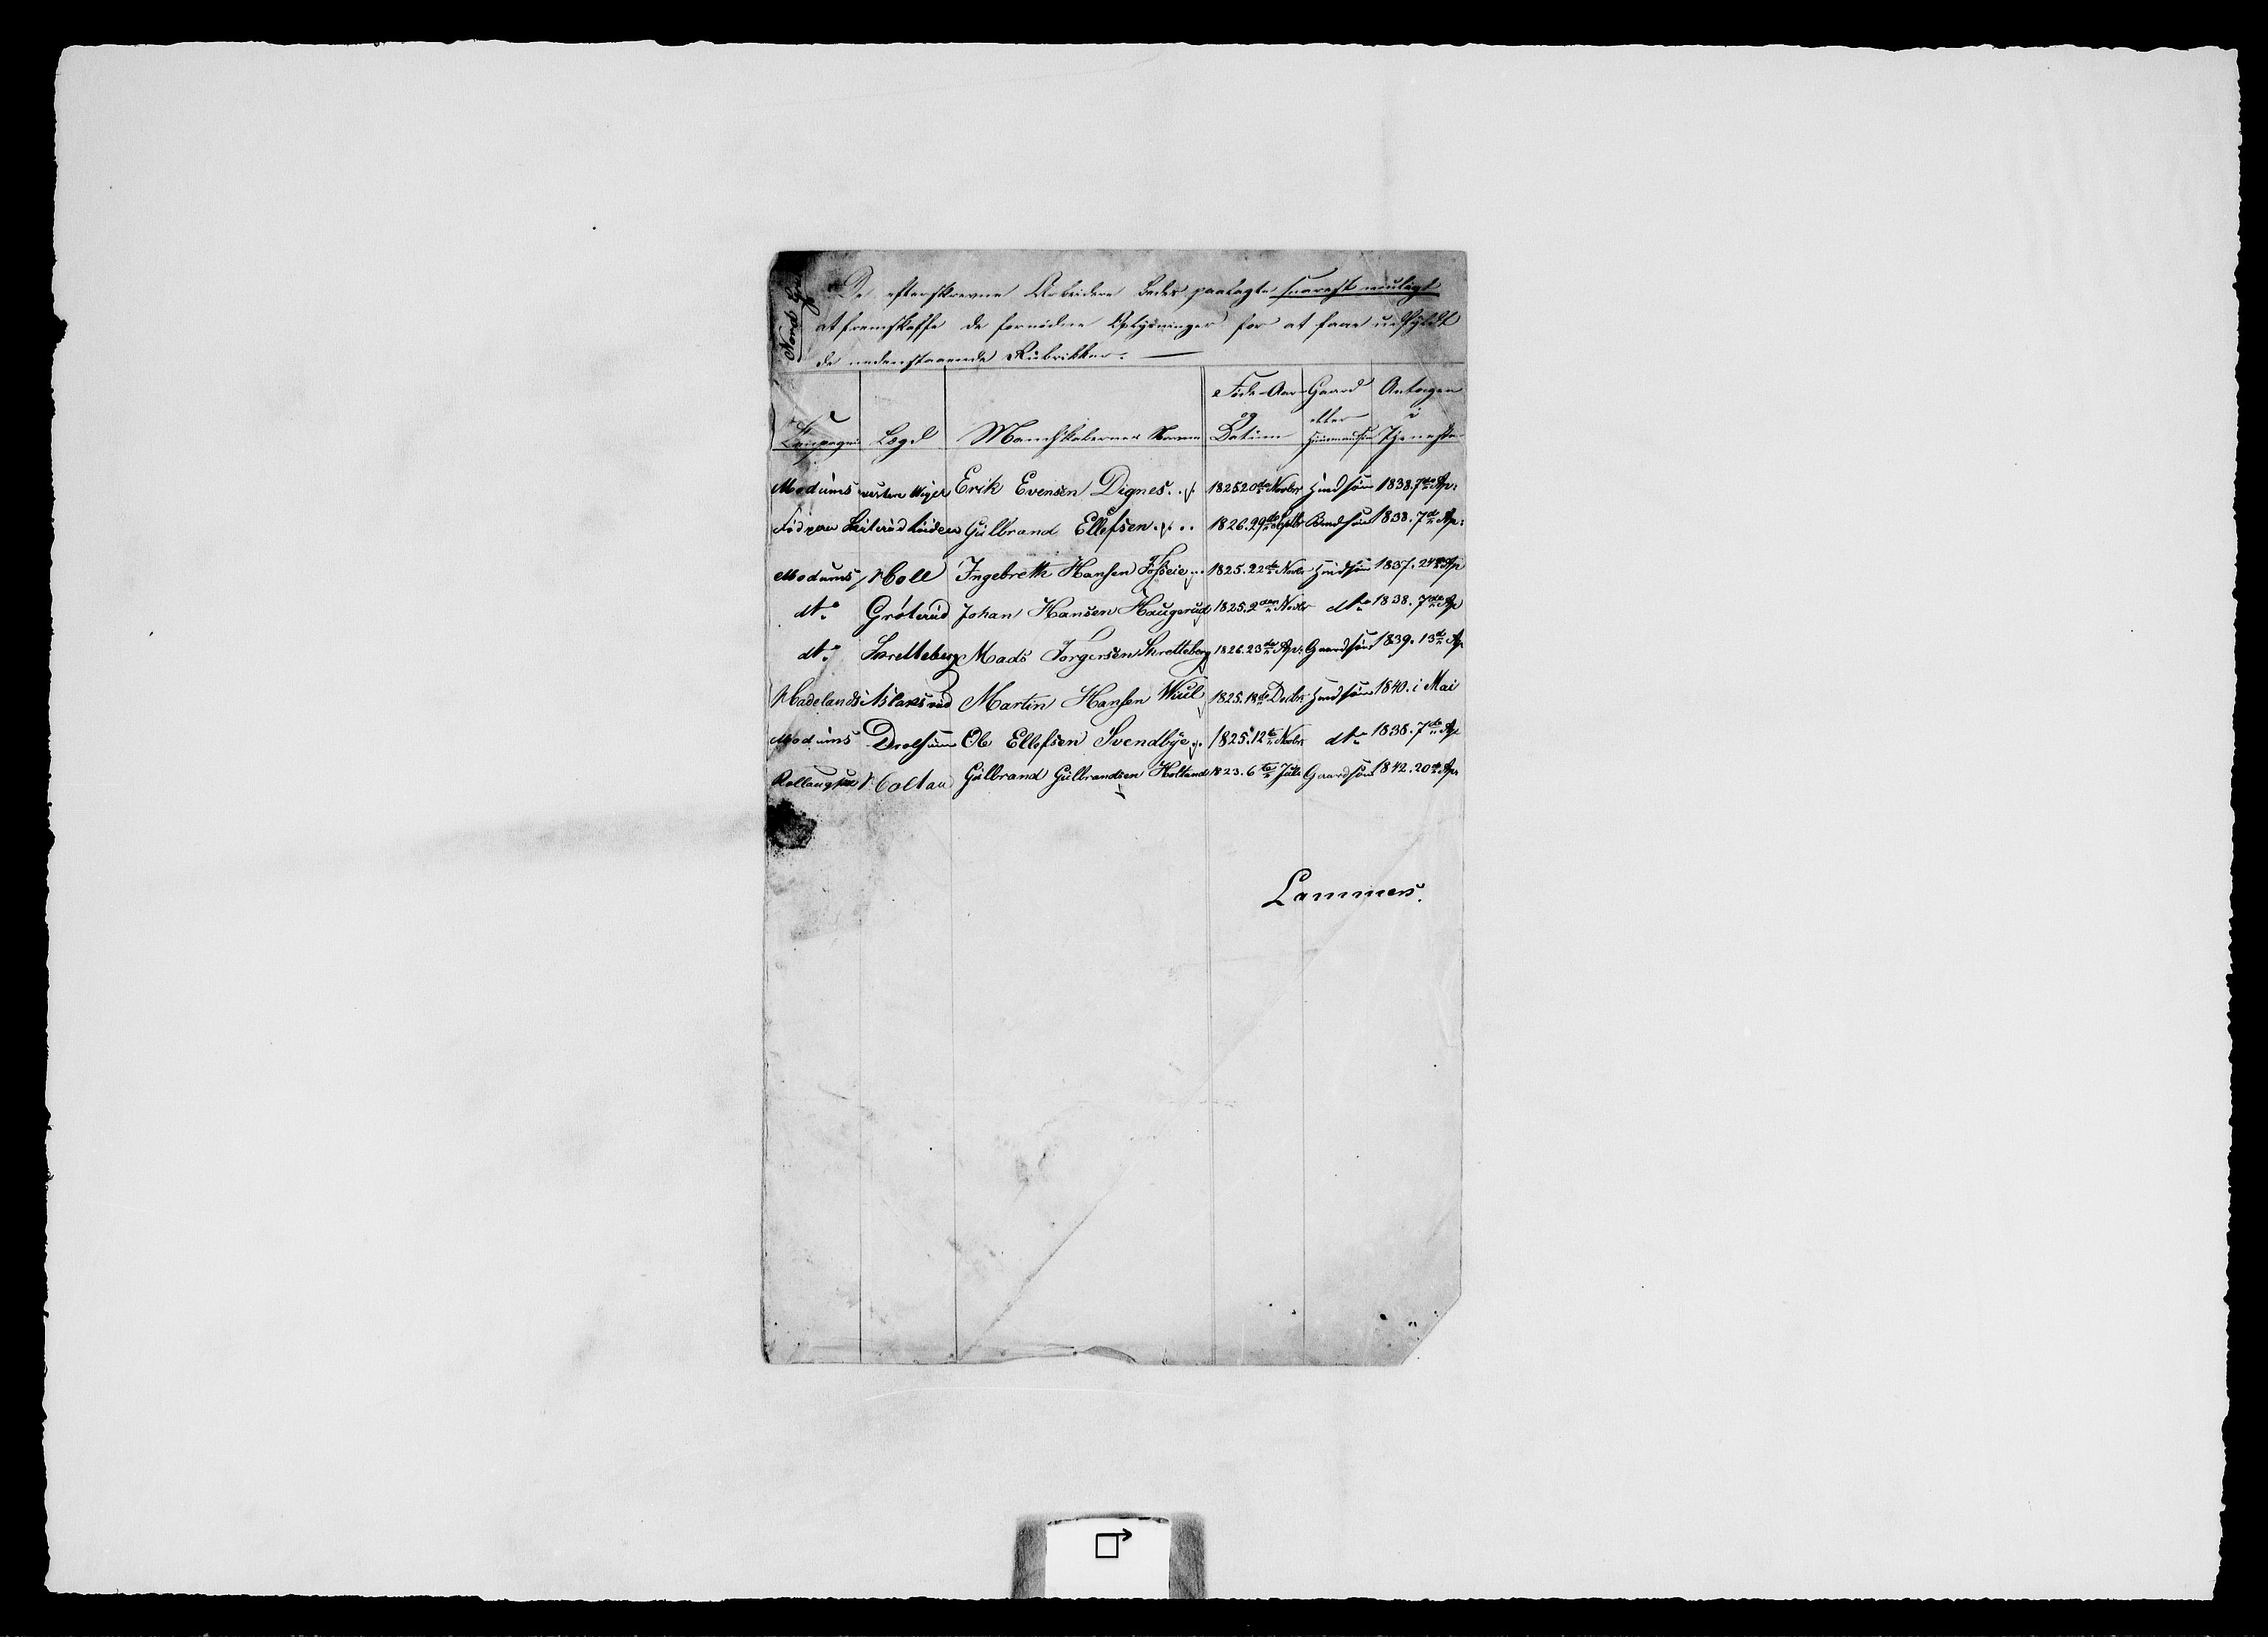 Nord Gr
De efterskrevne Arbeidere bedes paalagte snarest mueligt
at fremskaffe de fornødne Oplysninger for at faae udfyldt
de nedenstaaende Rubrikker. —
Compagni Lægd Mandskabernes Navne Føde-Aar og Datum Gaard eller Huusmandssøn Antagen i Tjeneste
Modums vestre Wiger Erik Evensen Dignes 1825 20de Novbr Huusdsøn 1838. 7de Ap:
Gulbrand Ellefsen 1826. 29de Septbr 1838. 7de Ap:
Modums Holl Ingebreth Hansen Fosseie 1825. 22de Novbr Huusdsøn 1837. 24de Ap
dto Gröterud Johan Hansen Haugerud 1825. 2den Novbr dto 1838. 7de Ap
dto Skretteberg Mads Torgersen Skretteberg 1826. 23de Ap: Gaardsøn 1839. 13de Ap
Hadelands Aslaksrud Martin Hansen Wiul 1825. 18de Decbr Huusdsøn 1840. i Mai
Modums Drolsum Ole Ellefsen Svendbye 1825. 12te Novbr dto 1838. 7de Ap
Rollaugs Holtan Gulbrand Gulbrandsen Holtand 1823. 6te Juli Gaardsøn 1842. 20de Ap
Lammers.